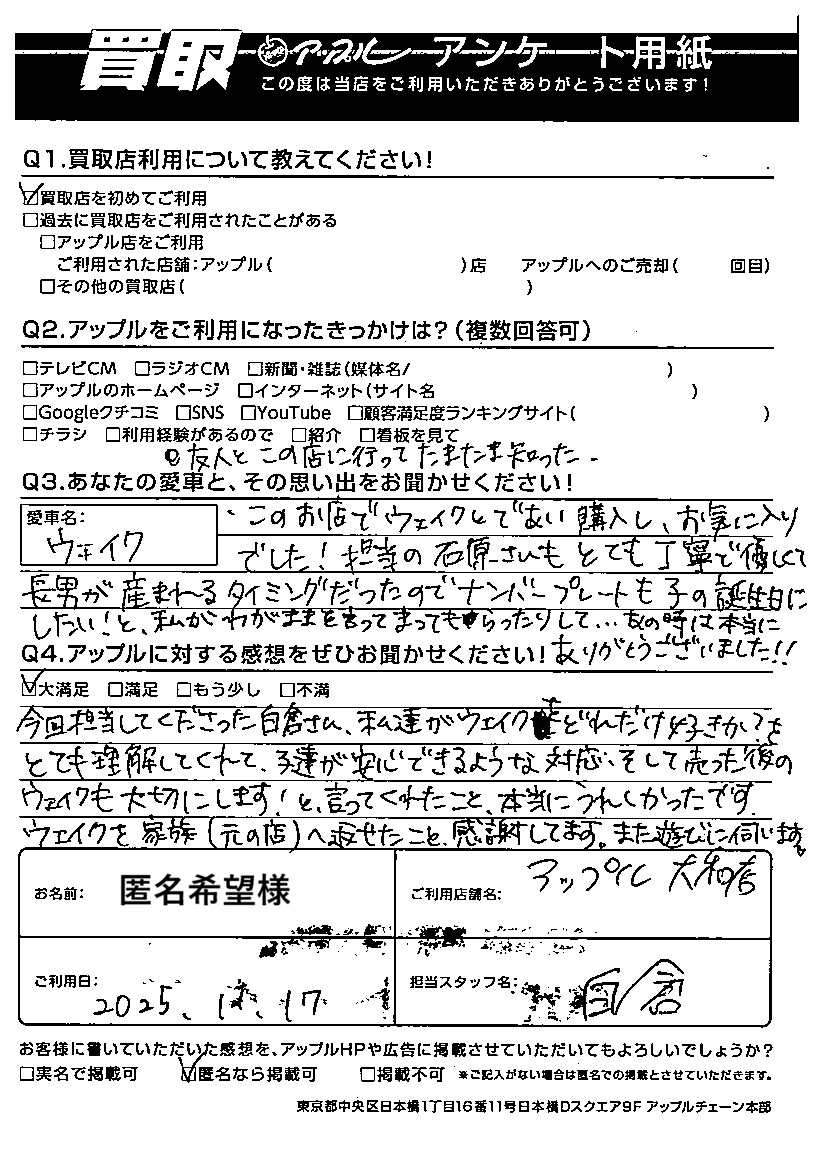 買取 アップル アンケート用紙
この度は当店をご利用いただきありがとうございます！
Q1.買取店利用について教えてください！
☑買取店を初めてご利用
□過去に買取店をご利用されたことがある
□アップル店をご利用
ご利用された店舗：アップル（ ）店 アップルへのご売却（ 回目）
□その他の買取店（ ）
Q2.アップルをご利用になったきっかけは？（複数回答可）
□テレビCM □ラジオCM □新聞・雑誌（媒体名/ ）
□アップルのホームページ □インターネット（サイト名 ）
□Googleクチコミ □SNS □YouTube □顧客満足度ランキングサイト（ ）
□チラシ □利用経験があるので □紹介 □看板を見て
友人とこの店に行ってたまたま知った。
Q3.あなたの愛車と、その思い出をお聞かせください！
愛車名：
ウェイク
・このお店でウェイクとであい購入し、お気に入り
でした！担当の石原さんもとても丁寧で優しくて
長男が産まれるタイミングだったのでナンバープレートも子の誕生日に
したい！と、私がわがままを言ってまってもらったりして…あの時は本当に
Q4.アップルに対する感想をぜひお聞かせください！ありがとうございました!!
☑大満足 □満足 □もう少し □不満
今回担当してくださった白倉さん、私達がウェイクをどれだけ好きか？を
とても理解してくれて、子達が安心できるような対応、そして売った後の
ウェイクも大切にします！と、言ってくれたこと、本当にうれしかったです
ウェイクを家族（元の店）へ返せたこと、感謝してます。また遊びに伺います。
お名前： 匿名希望様
ご利用店舗名： アップル 大和店
ご利用日： 2025、 、17
担当スタッフ名： 白倉
お客様に書いていただいた感想を、アップルHPや広告に掲載させていただいてもよろしいでしょうか？
□実名で掲載可 ☑匿名なら掲載可 □掲載不可 ※ご記入がない場合は匿名での掲載とさせていただきます。
東京都中央区日本橋1丁目16番11号日本橋Dスクエア9F アップルチェーン本部